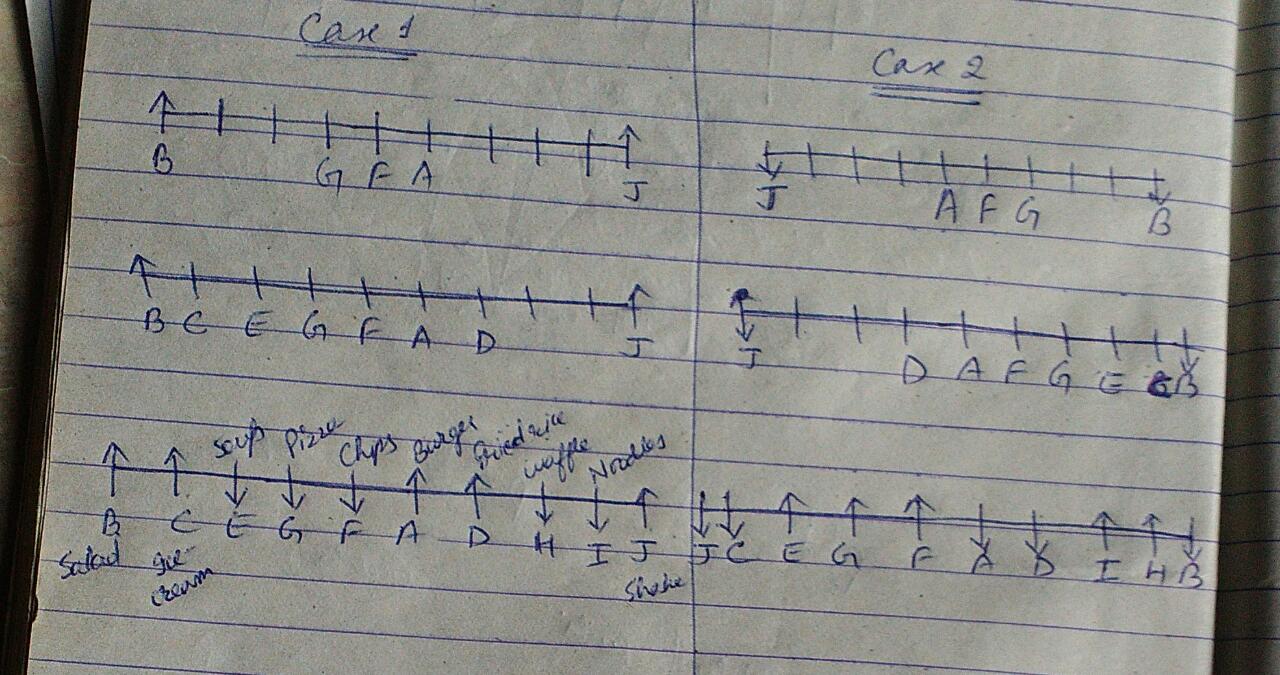 Case 1
Case 2
B G F A J
J A F G B
B C E G F A D J
J D A F G E C B
Soup Pizza Chips Burger friedrice waffle Noodles
B C E G F A D H I J
J C E G F A D I H B
Salad Ice-cream Shake